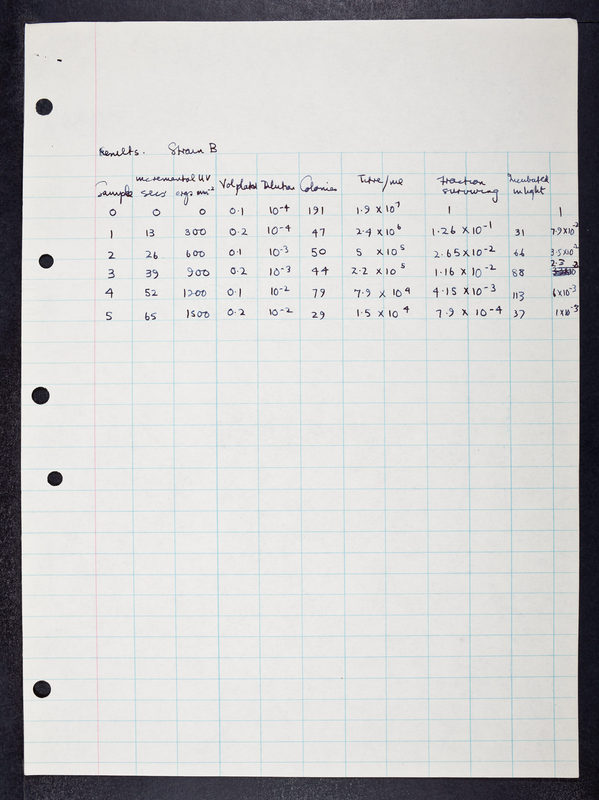 Results. Strain B
Sample incremental UV secs ergs mm⁻² Vol plated Dilution Colonies Titre/ml Fraction surviving Incubated in light
0 0 0 0.1 10⁻⁴ 191 1.9 × 10⁷ 1 1
1 13 300 0.2 10⁻⁴ 47 2.4 × 10⁶ 1.26 × 10⁻¹ 31 7.9×10⁻²
2 26 600 0.1 10⁻³ 50 5 × 10⁵ 2.65 × 10⁻² 66 3.5×10⁻²
3 39 900 0.2 10⁻³ 44 2.2 × 10⁵ 1.16 × 10⁻² 88 2.3
4 52 1200 0.1 10⁻² 79 7.9 × 10⁴ 4.15 × 10⁻³ 113 6×10⁻³
5 65 1500 0.2 10⁻² 29 1.5 × 10⁴ 7.9 × 10⁻⁴ 37 1×10⁻³